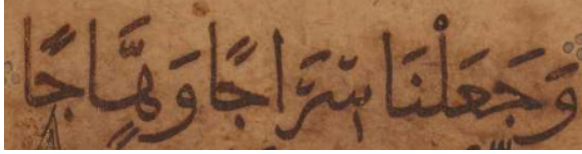 وَجَعَلْنَا سِرَاجًا وَهَّاجًا